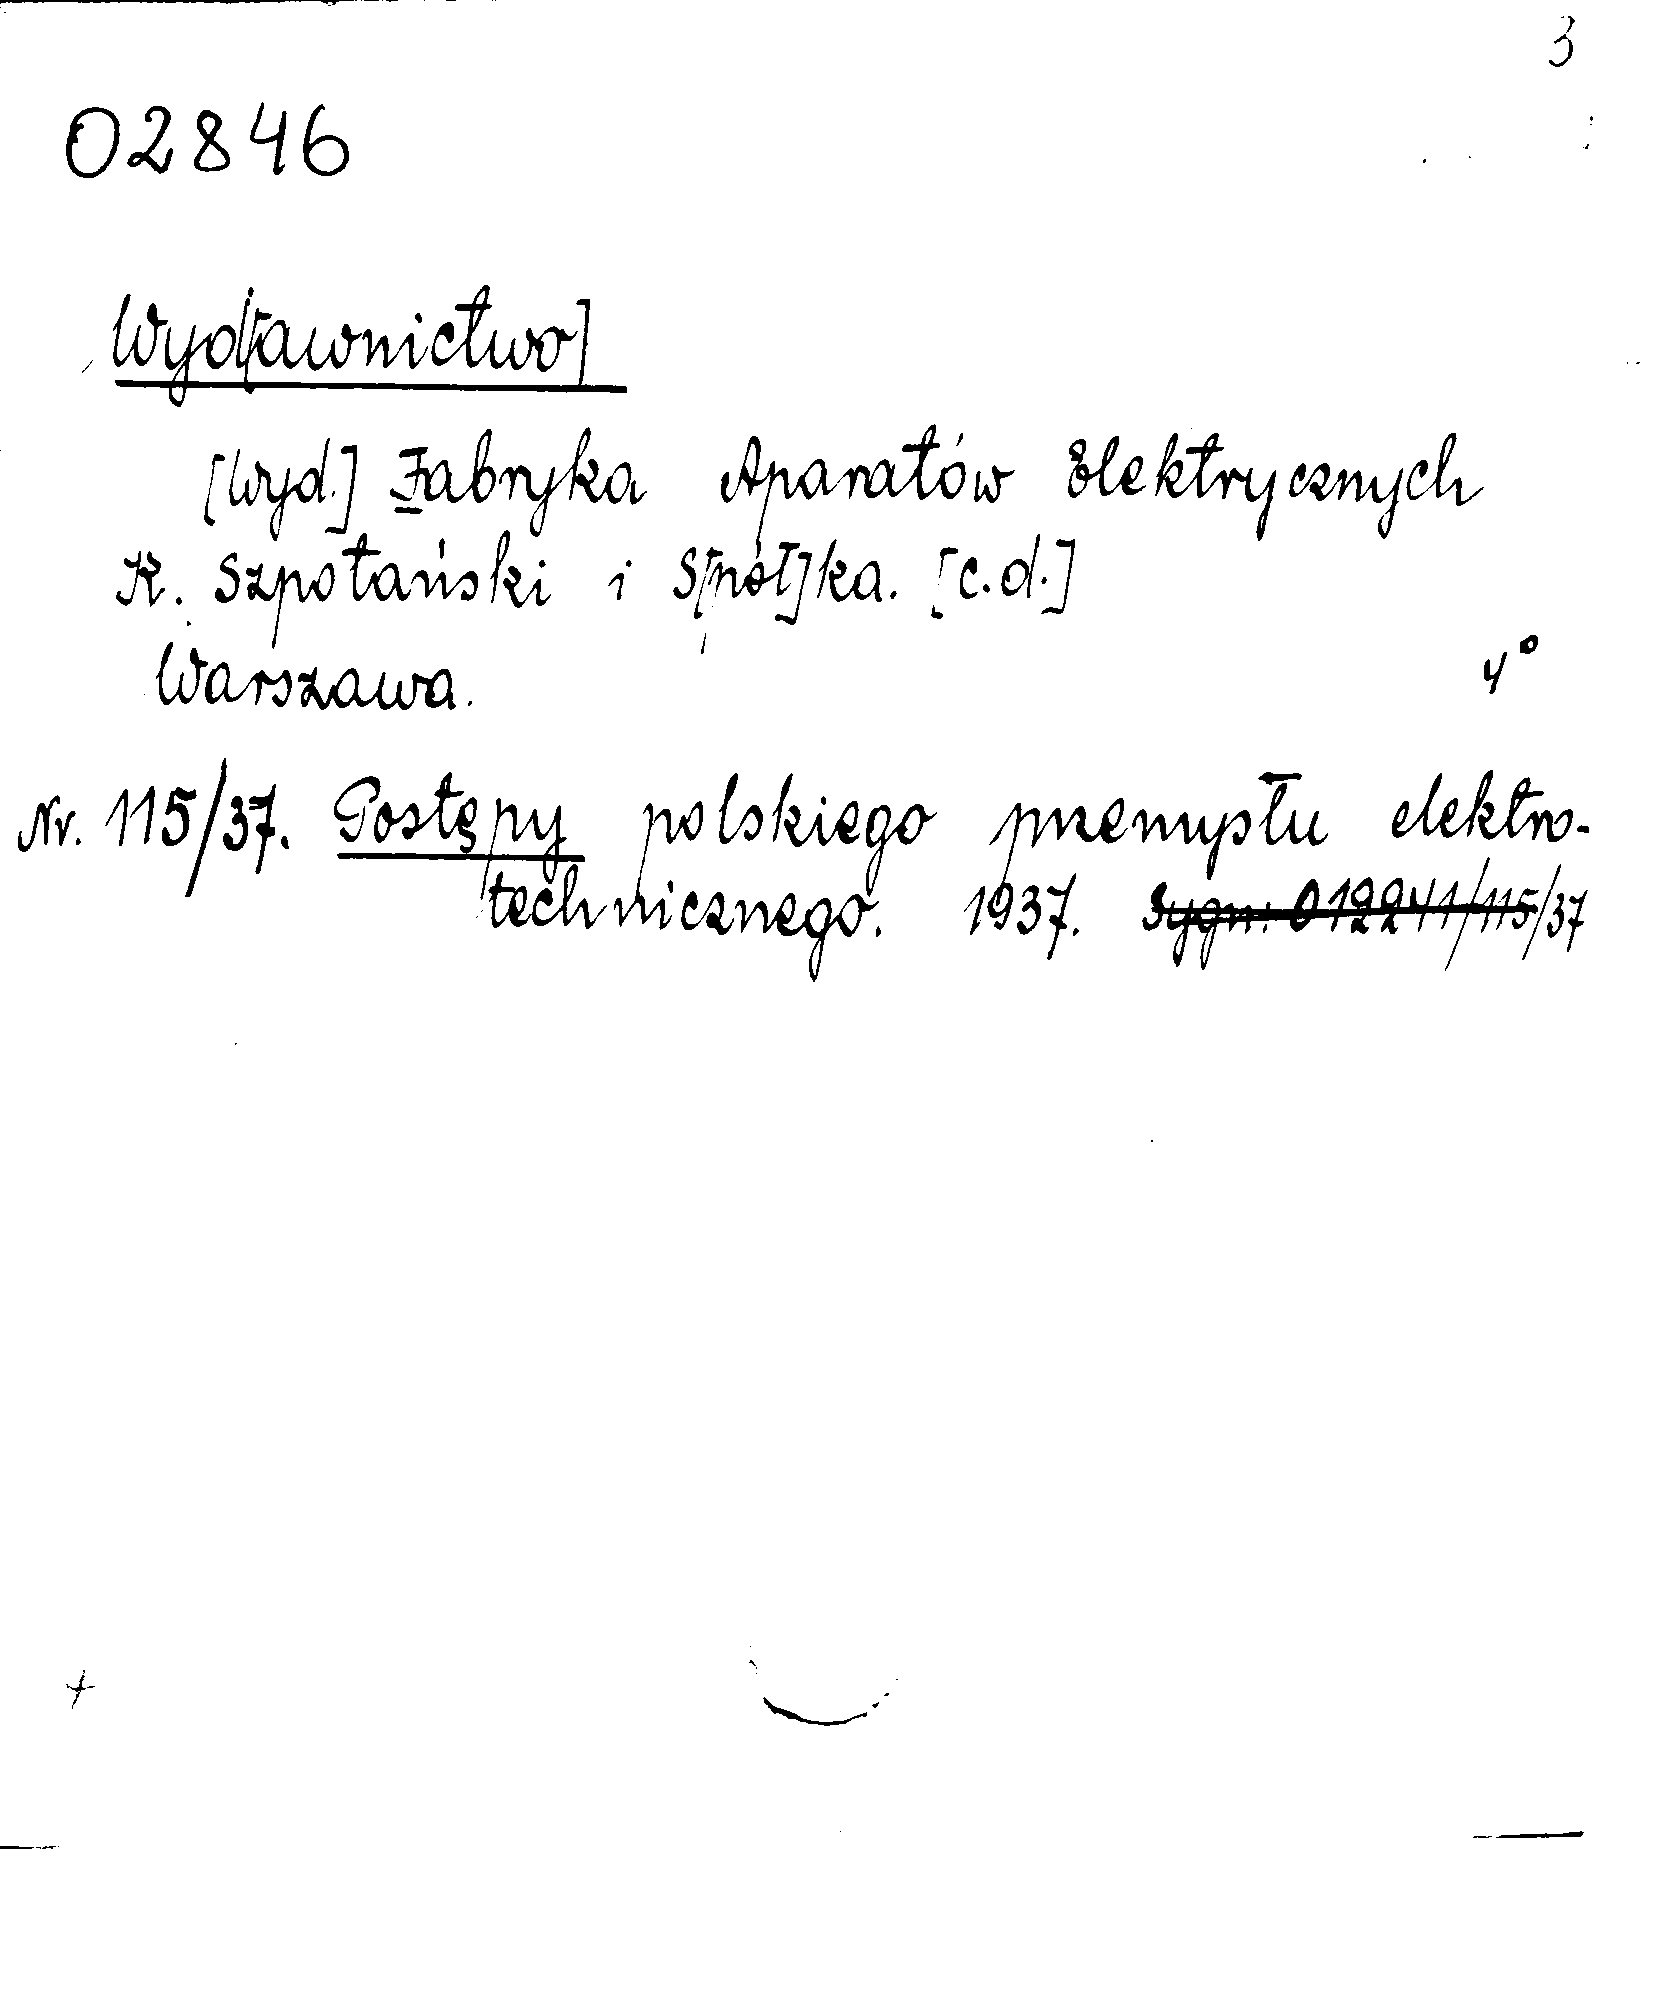 3
02846
Wyd[awnictwo]
[Wyd.] Fabryka Aparatów Elektrycznych
K. Szpotański i S[pół]ka. [c.d.]
Warszawa. 4°
Nr. 115/37. Postępy polskiego przemysłu elektro-
technicznego. 1937. Sygn: 012241/115/37
+